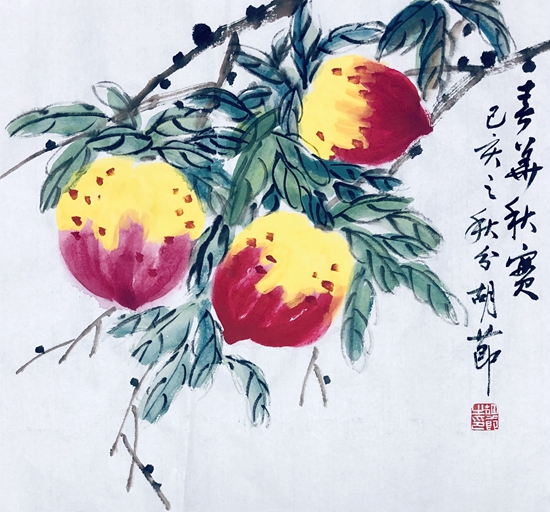 春华秋實
己亥之秋分胡節